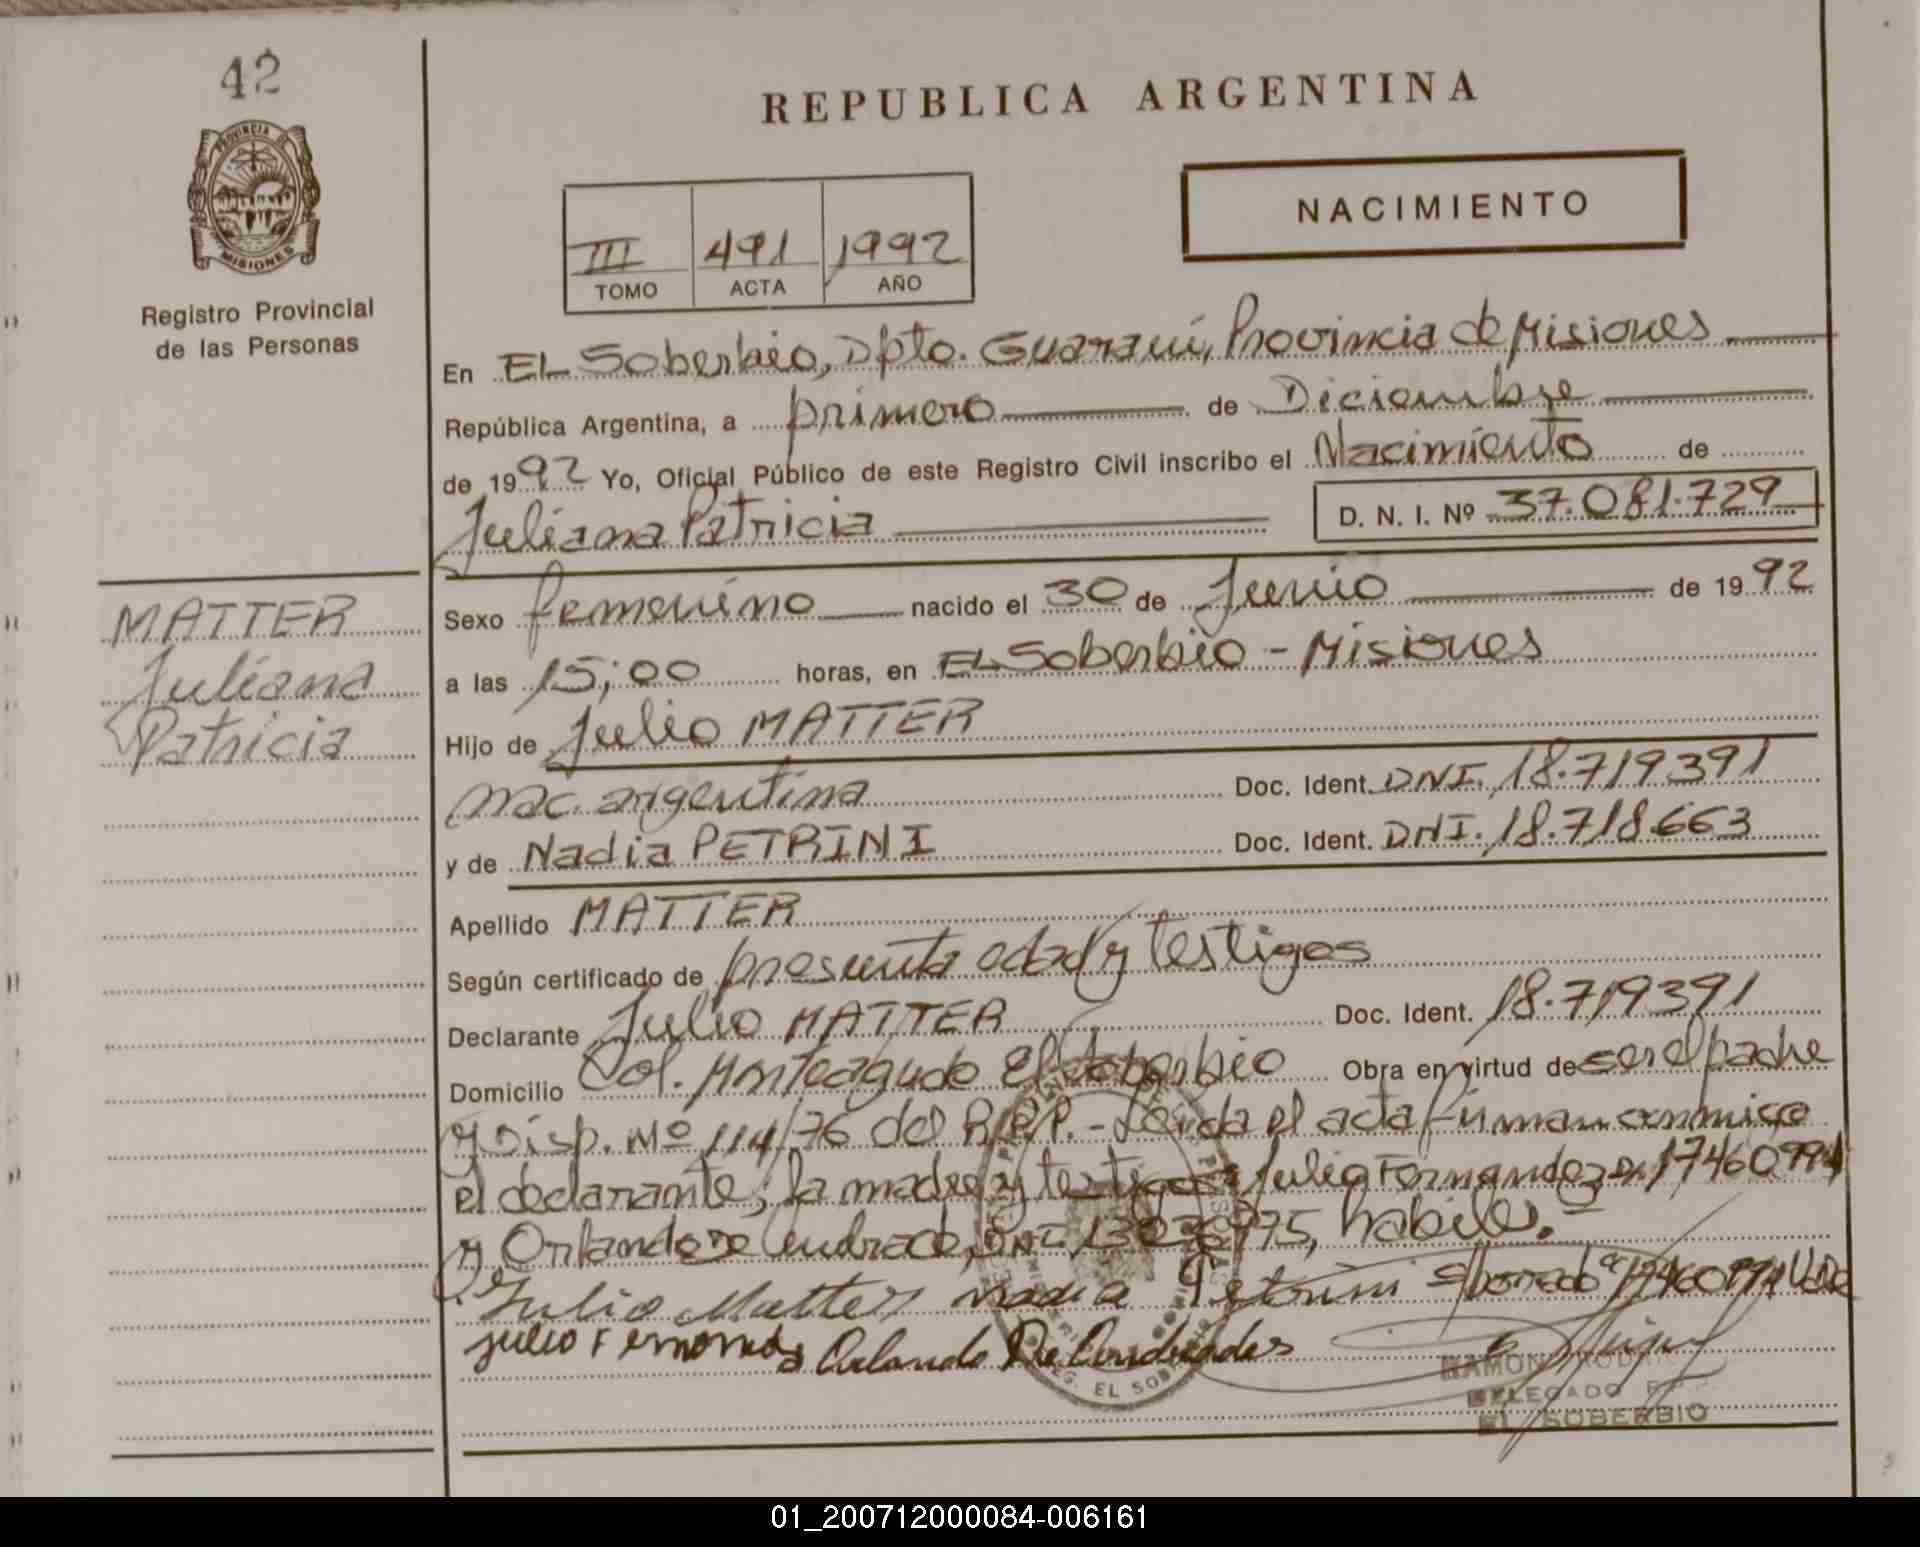 42
REPUBLICA ARGENTINA
PROVINCIA DE
MISIONES
Registro Provincial
de las Personas
NACIMIENTO
III 491 1992
TOMO ACTA AÑO
En EL Soberbio, Dpto. Guaraní, Provincia de Misiones
República Argentina, a primero de Diciembre
de 1992 Yo, Oficial Público de este Registro Civil inscribo el Nacimiento de
Juliana Patricia D. N. I. Nº 37.081.729
MATTER
Juliana
Patricia
Sexo femenino nacido el 30 de Junio de 1992
a las 15;00 horas, en EL Soberbio - Misiones
Hijo de Julio MATTER
nac. argentina Doc. Ident. DNI. 18.719391
y de Nadia PETRINI Doc. Ident. DNI. 18.718.663
Apellido MATTER
Según certificado de presunta edad y testigos
Declarante Julio MATTER Doc. Ident. 18.719391
Domicilio Col. Monteagudo El Soberbio Obra en virtud de ser el padre
y Disp. Nº 114/76 del R.P.P. - Leída el acta firman conmigo
el declarante, la madre y testigos Julio Fernandez 17460994
y Orlando de Andrade, DNI. habiles.-
Julio Matter Nadia Petrini 17460994 Vale
Julio Fernandes Orlando De Andrades
RAMON
DELEGADO
EL SOBERBIO
01_200712000084-006161